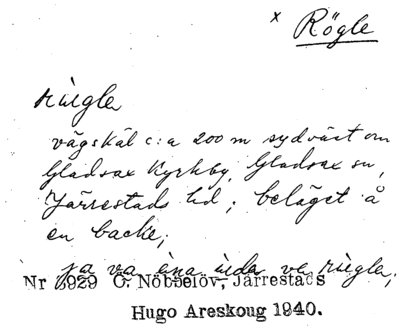 x Rögle
rùeglₑ
vägskäl c:a 200 m sydväst om
Gladsax Kyrkby, Gladsax sn,
Järrestads hd; beläget å
en backe;
ja va ina ve rùegla;
Nr 3929 Ö. Nöbbelöv, Järrestads
Hugo Areskoug 1940.